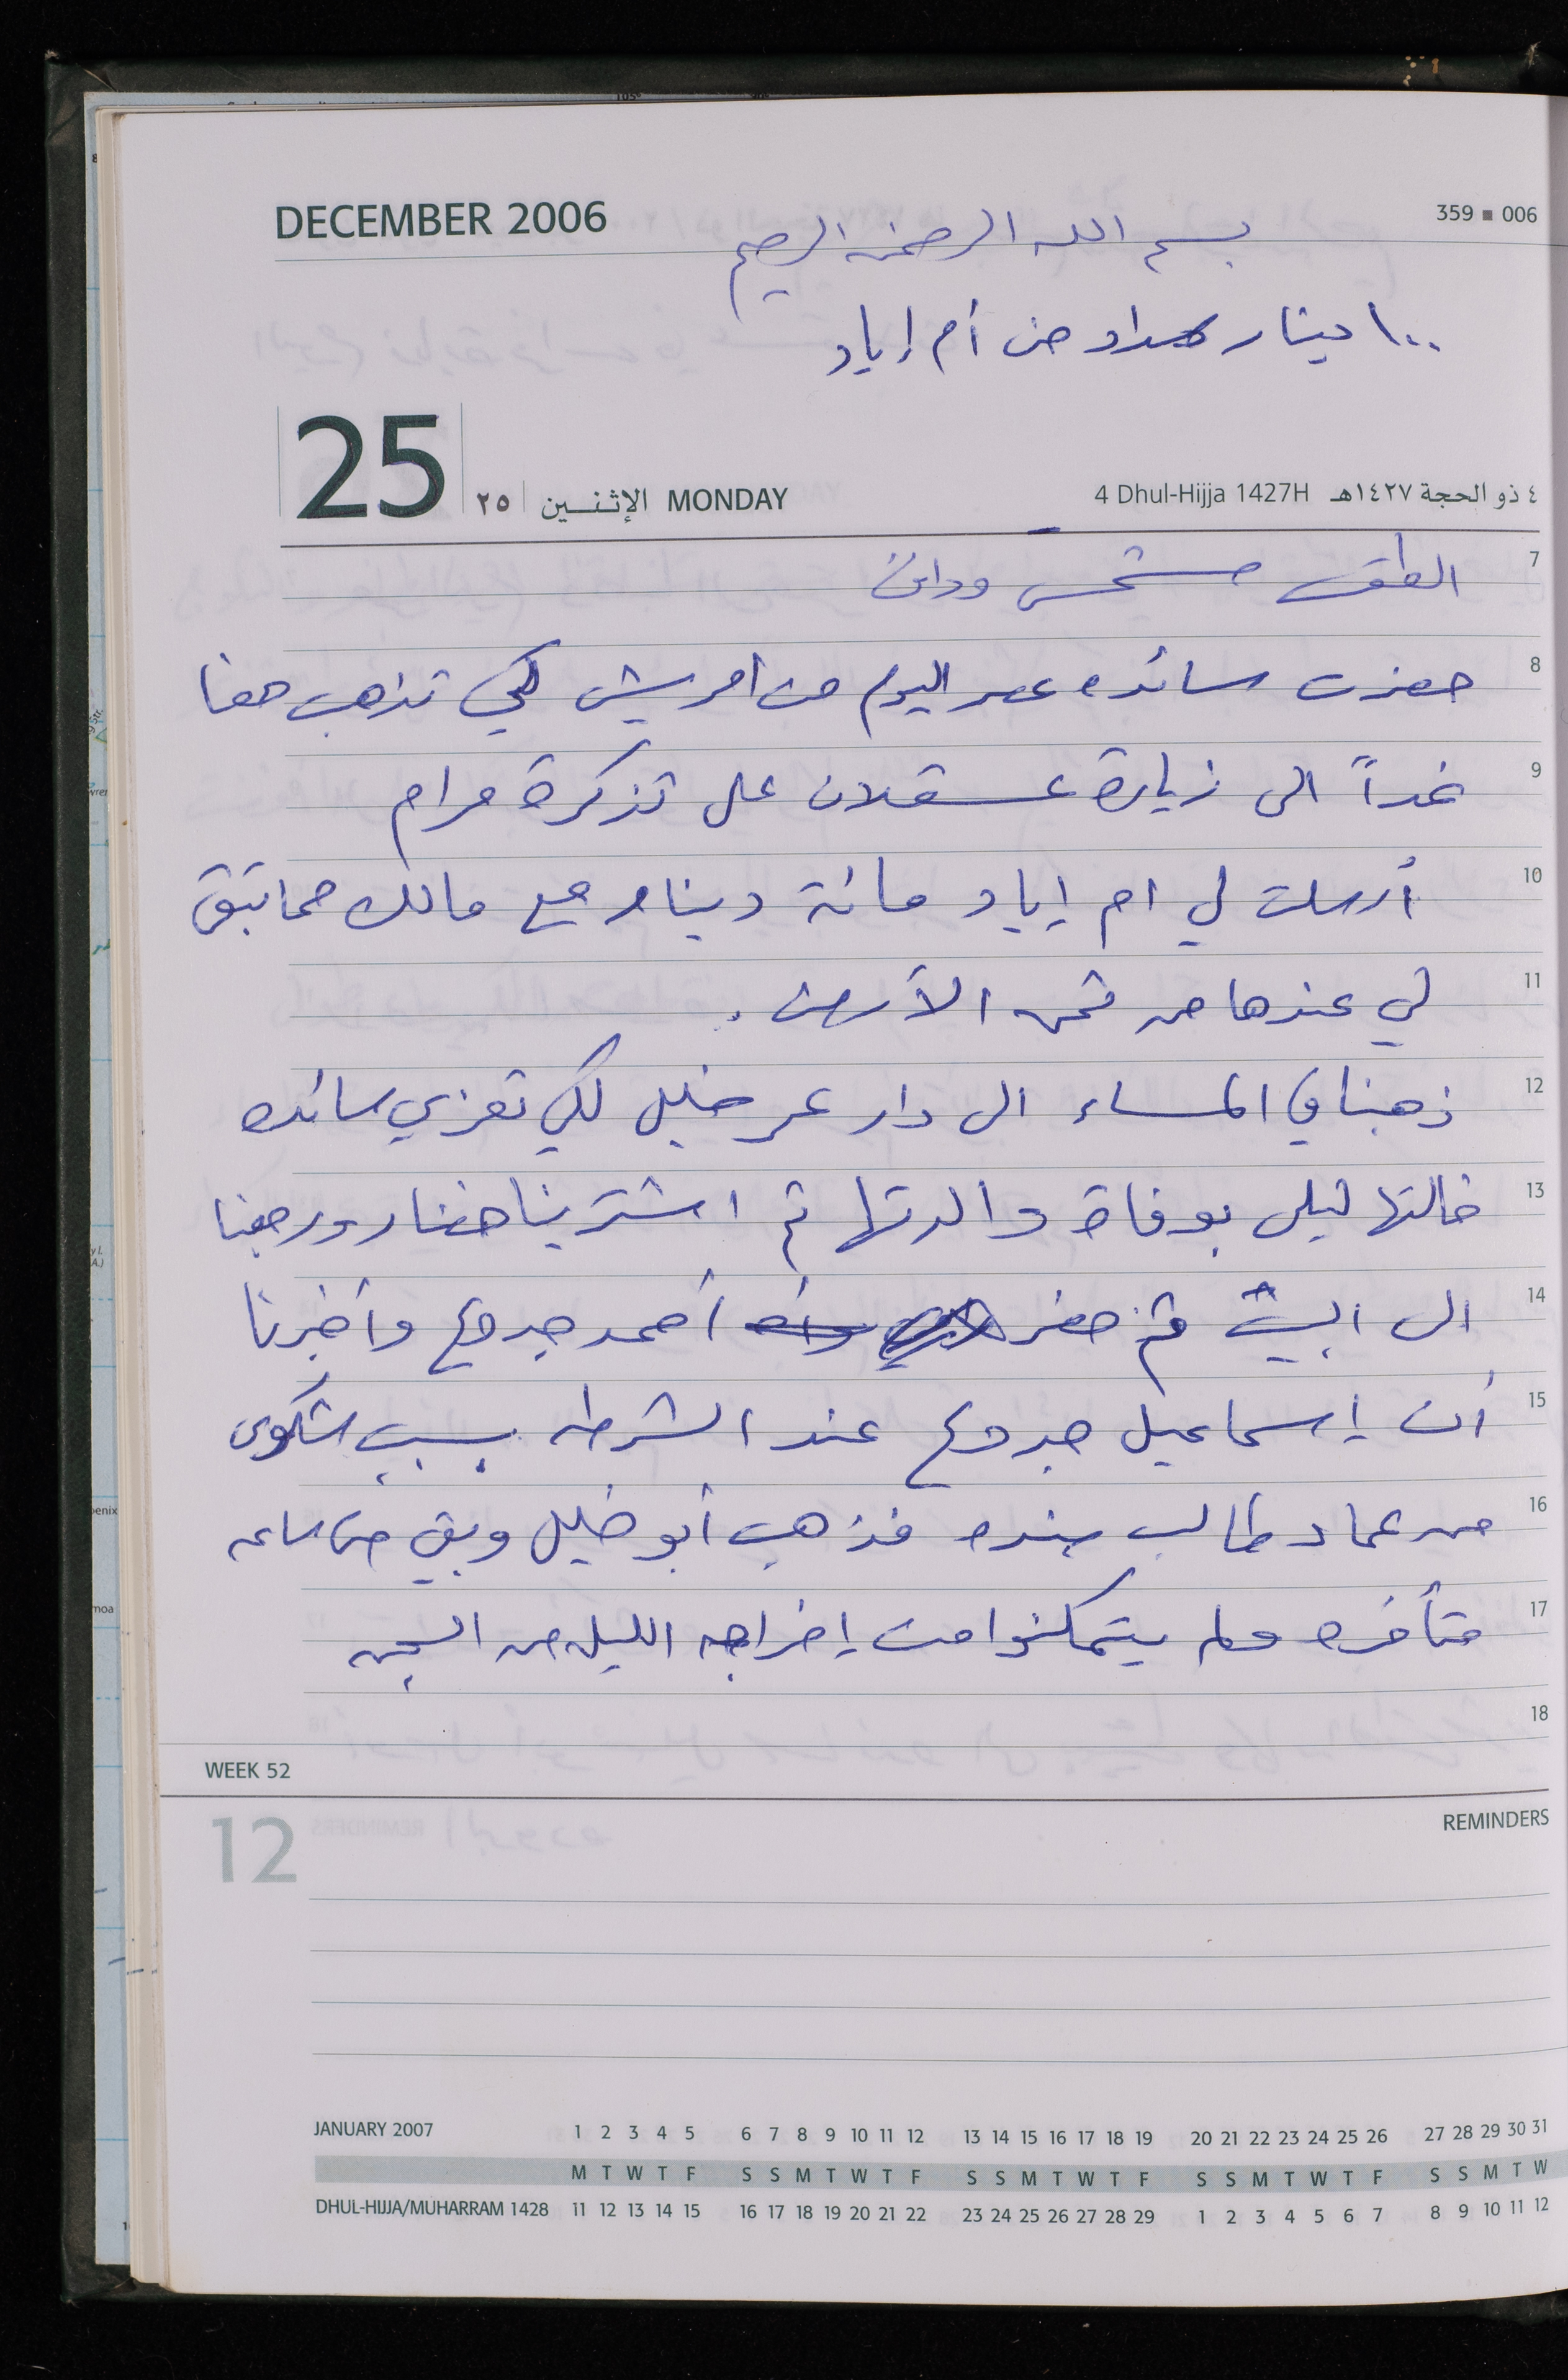 DECEMBER 2006
359 ■ 006
بسم الله الرحمن الرحيم
١٠٠ دينار سداد من أم إياد
25 ٢٥ الإثنين MONDAY
4 Dhul-Hijja 1427H ٤ ذو الحجة ١٤٢٧هـ
7 الطقس مشمس ودافئ
8 حضرت سائده عصر اليوم من امريش لكي تذهب معنا
9 غداً الى زيارة عسقلان على تذكرة مرام
10 أرسلت لي ام إياد مائة دينار مع مالك مما تبقى
11 لي عندها من ثمن الأرض .
12 ذهبنا في المساء الى دار عمر خليل لكي تعزي سائده
13 خالتها ليلى بوفاة والدتها ثم اشترينا خضار ورجعنا
14 الى البيت ثم حضر أحمد جدوع وأخبرنا
15 أن إسماعيل جدوع عند الشرطه بسبب شكوى
16 من عماد طالب ضده فذهب أبو خليل وبقي حتى ساعه
17 متأخره ولم يتمكنوا من إخراجه الليله من السجن
18
WEEK 52
12
REMINDERS
JANUARY 2007 1 2 3 4 5 6 7 8 9 10 11 12 13 14 15 16 17 18 19 20 21 22 23 24 25 26 27 28 29 30 31
M T W T F S S M T W T F S S M T W T F S S M T W T F S S M T W
DHUL-HIJJA/MUHARRAM 1428 11 12 13 14 15 16 17 18 19 20 21 22 23 24 25 26 27 28 29 1 2 3 4 5 6 7 8 9 10 11 12